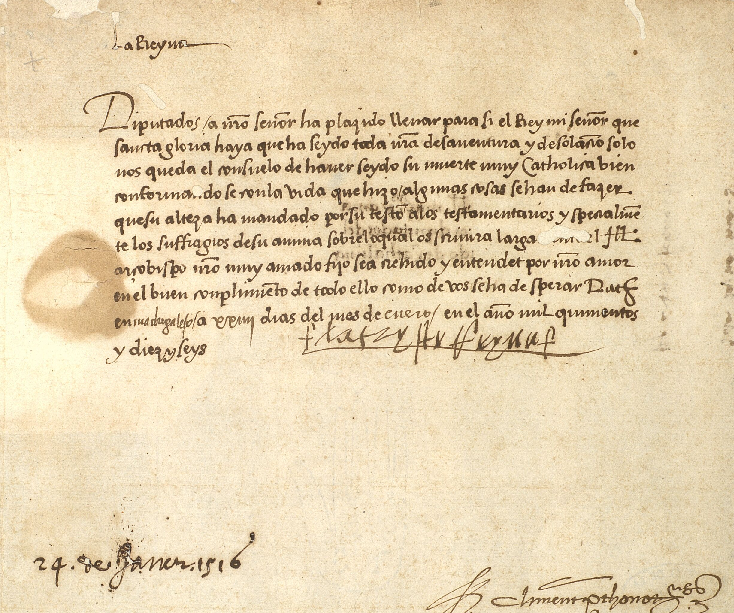 La Reyna
Diputados / a nr̄o señor ha plaçido llevar para si el Rey mi señor que
sancta gloria haya que ha seydo toda nr̄a desaventura y desolacio solo
nos queda el consuelo de haver seydo su muerte muy Catholica bien
conforma..do se con la vida que hizo / algunas cosas se han de fazer
que su alteza ha mandado por su testo a los testamentarios y specialme
te los suffragios de su anima sobre lo qual os scrivira largo el Ill
arcobispo nr̄o muy amado fijo sea crehido y entendet por nr̄o amor
en el buen conplimento de todo ello como de vos se ha de sperar Dat
en a xxiiij dias del mes de enero / en el año mil quinientos
y diez y seys
la trista Reyna
24. de Janer. 1516
Climent prothonot